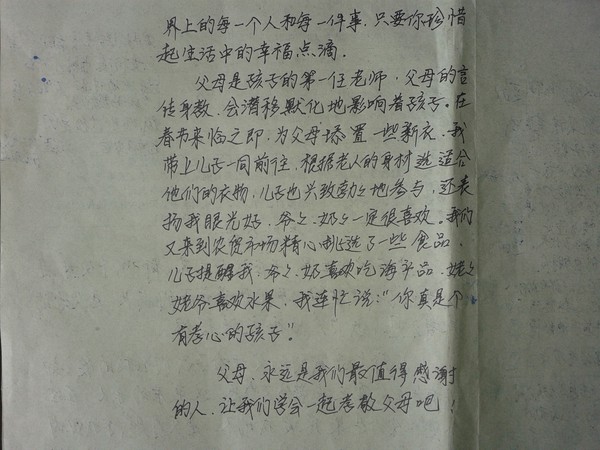 界上的每一个人和每一件事，只要你珍惜
起生活中的幸福点滴．
父母是孩子的第一任老师，父母的言
传身教，会潜移默化地影响着孩子。在
春节来临之即，为父母添置一些新衣，我
带上儿子一同前往，根据老人的身材选适合
他们的衣物，儿子也兴致勃勃地参与，还表
扬我眼光好，爷爷、奶奶一定很喜欢。我们
又来到农贸市场精心挑选了一些食品，
儿子提醒我，爷爷、奶喜欢吃海产品，姥姥
姥爷喜欢水果，我连忙说："你真是个
有孝心的孩子"。
父母，永远是我们最值得感谢
的人，让我们学会一起孝敬父母吧！